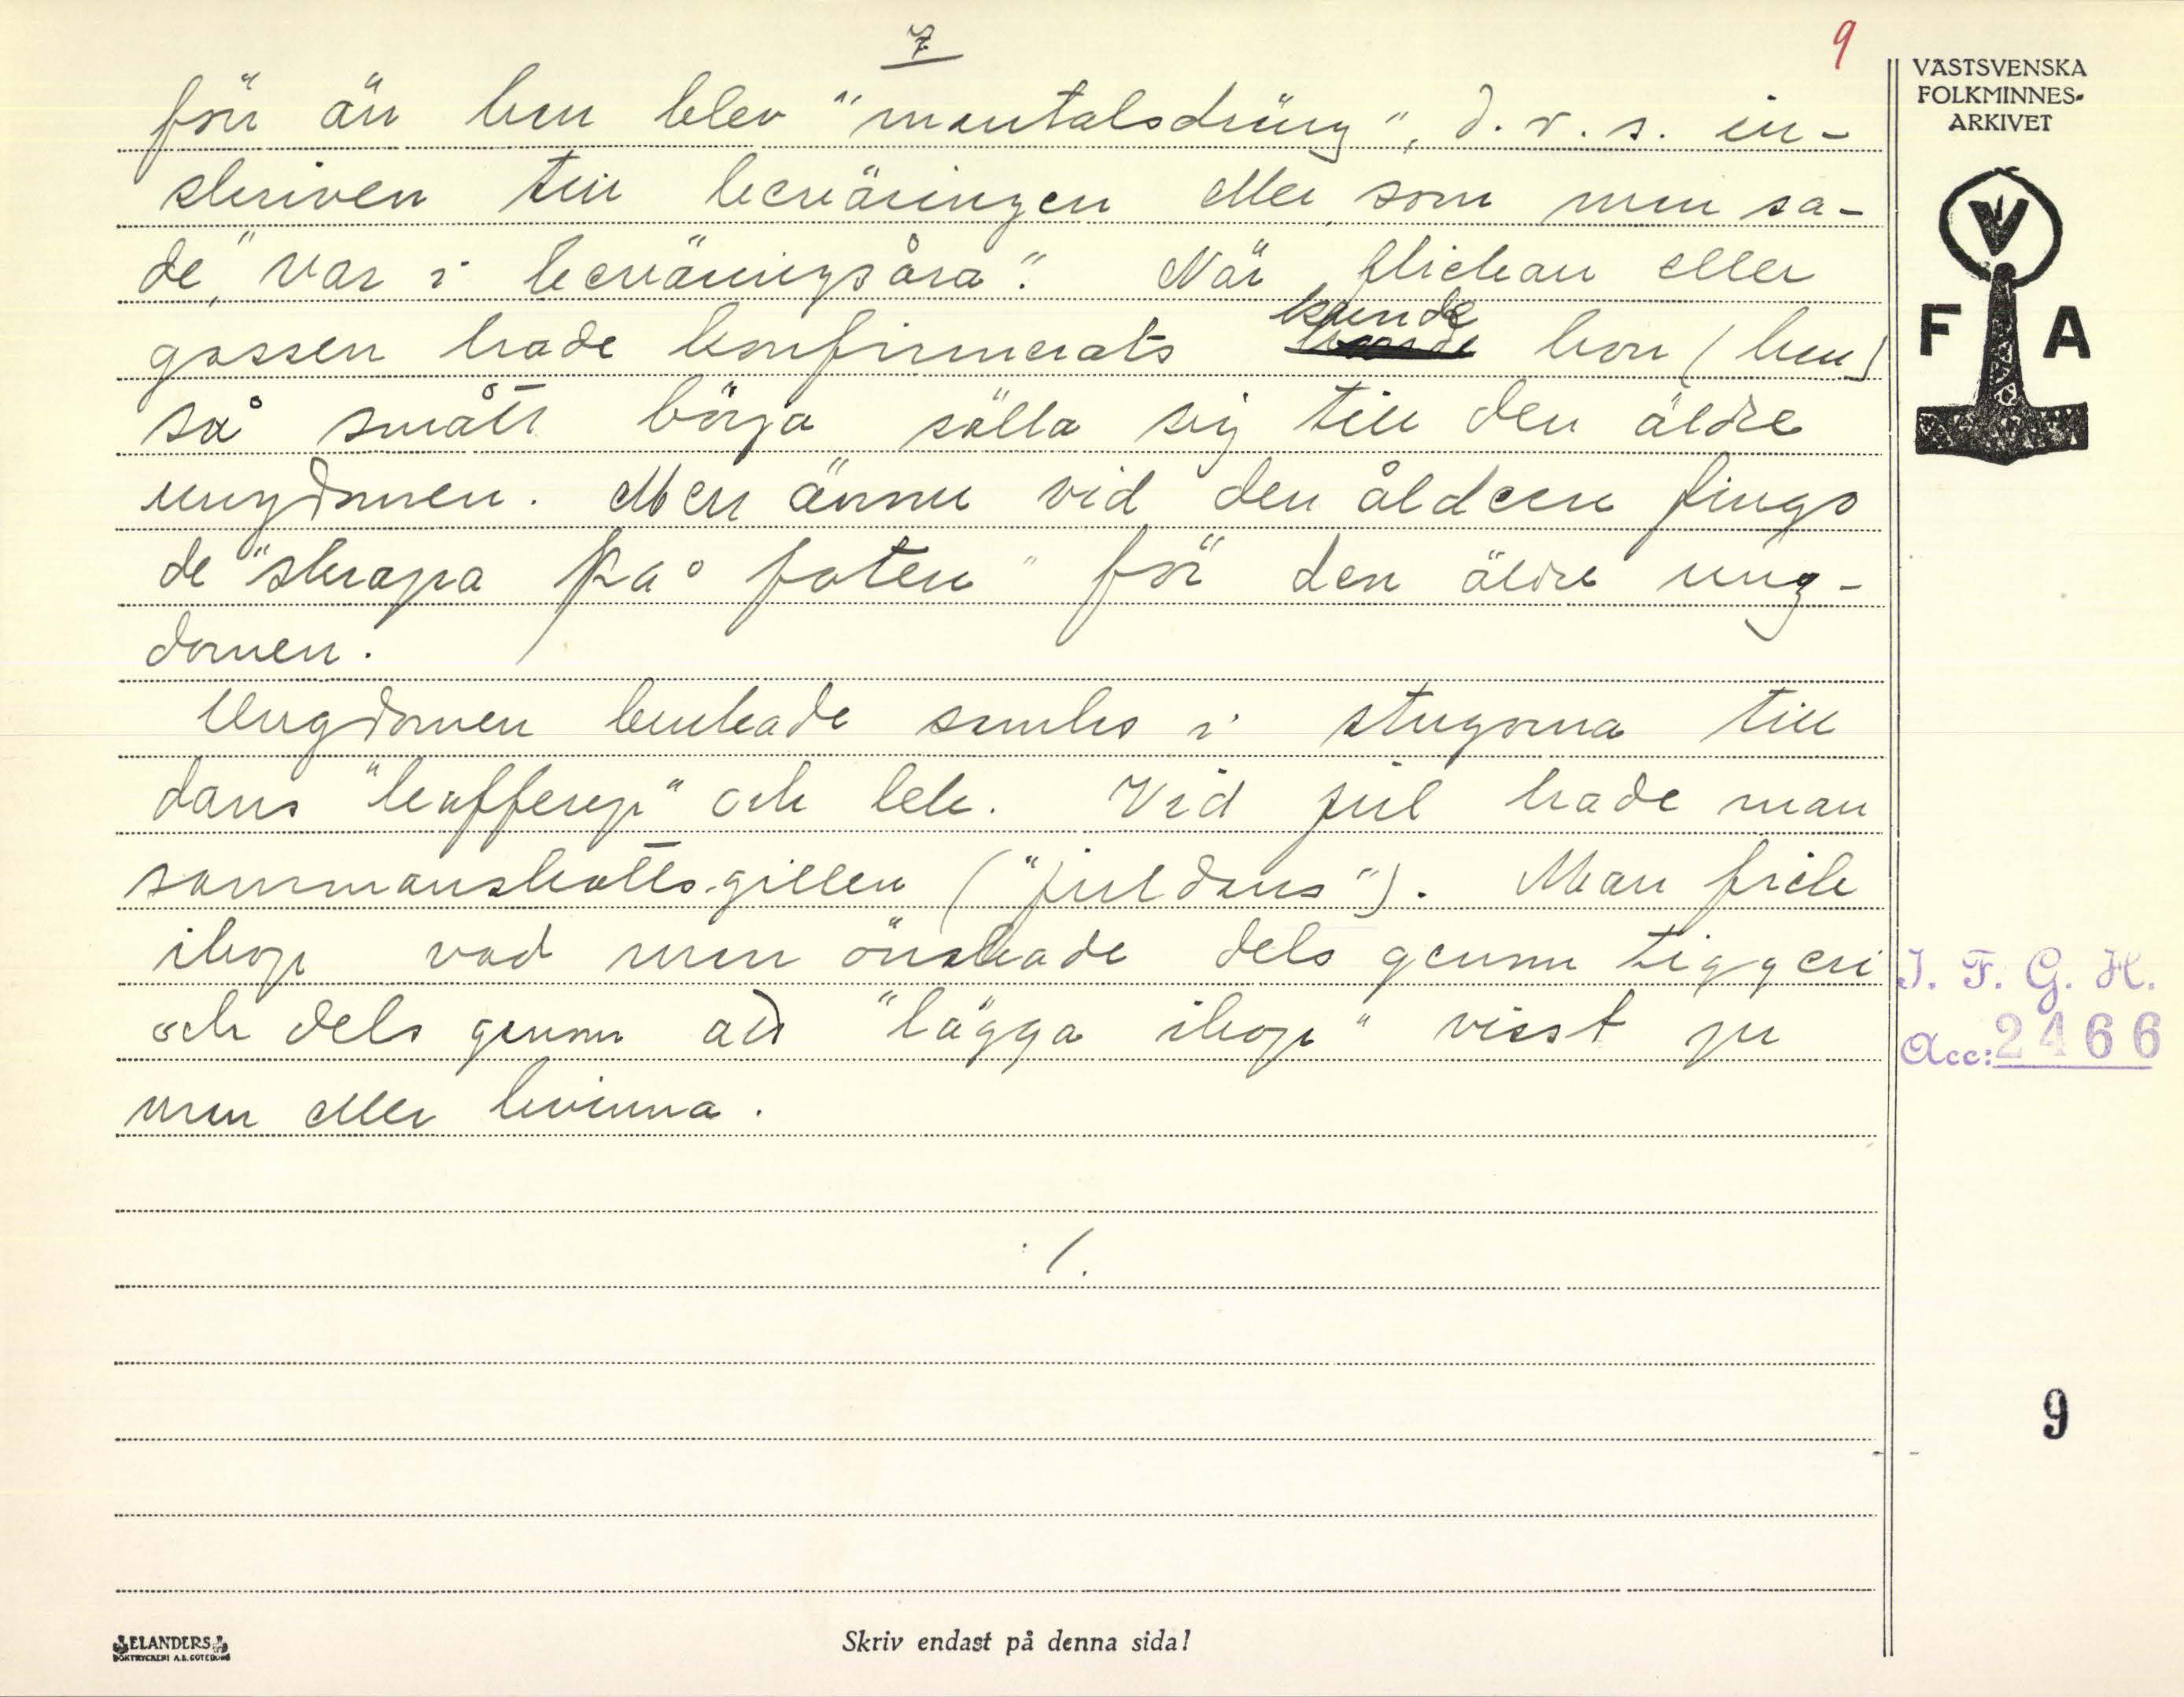 7
9
förr än han blev "mantalsdräng", d.v.s. in-
skriven till beväringen eller, som man sa-
de, "var i beväringsåra". När flickan eller
gossen hade konfirmerats kunde hon (han)
så smått börja sälla sig till den äldre
ungdomen. Men ännu vid den åldern fingo
de "skrapa på foten" för den äldre ung-
domen.
Ungdomen brukade samlas i stugorna till
dans "kafferep" och lek. Vid jul hade man
sammanskotts-gillen ("juldans"). Man fick
ihop vad man önskade dels genom tiggeri
och dels genom att "lägga ihop" visst pr
man eller kvinna.
./.
VÄSTSVENSKA
FOLKMINNES-
ARKIVET
V
F A
I. F. G. H.
Acc: 2466
9
ELANDERS
BOKTRYCKERI A.B. GÖTEBORG
Skriv endast på denna sida!